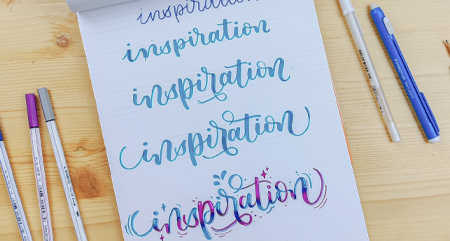 inspiration
inspiration
inspiration
inspiration
inspiration